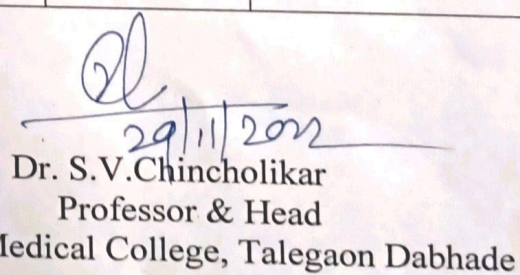 29/11/2022
Dr. S.V.Chincholikar
Professor & Head
Medical College, Talegaon Dabhade